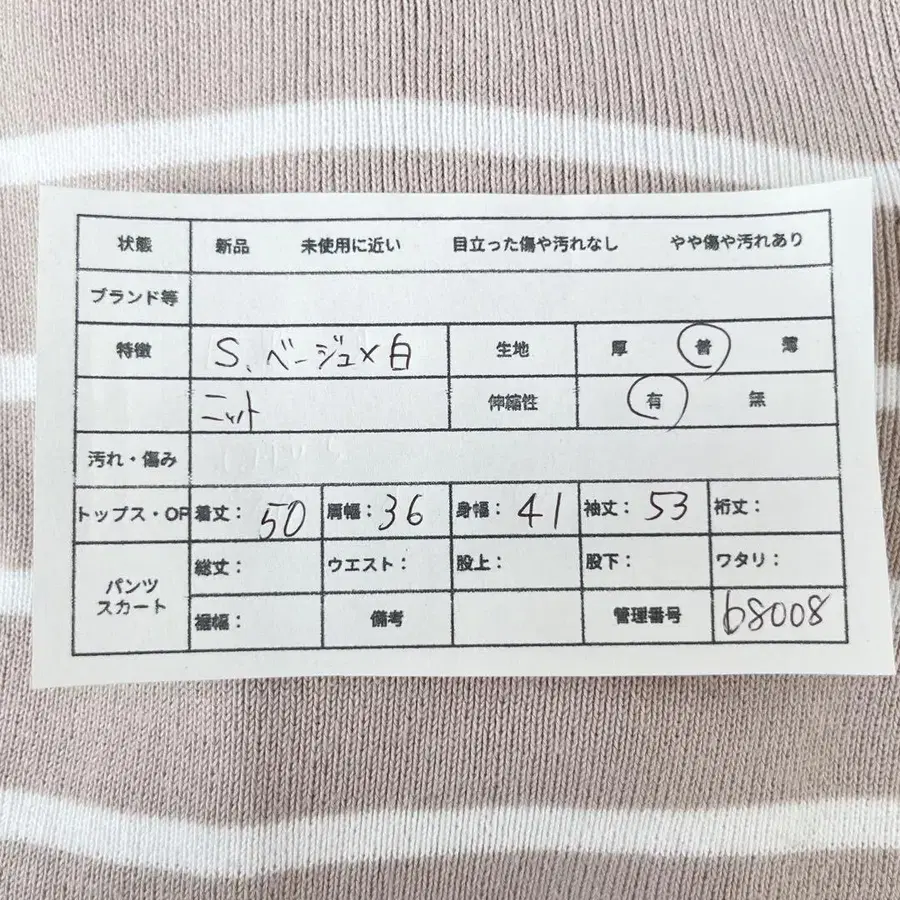 状態 新品 未使用に近い 目立った傷や汚れなし やや傷や汚れあり
ブランド等
特徴 S、ベージュ×白 生地 厚 普 薄
ニット 伸縮性 有 無
汚れ・傷み
トップス・OP 着丈: 50 肩幅: 36 身幅: 41 袖丈: 53 裄丈:
パンツ スカート 総丈: ウエスト: 股上: 股下: ワタリ:
裾幅: 備考 管理番号 68008